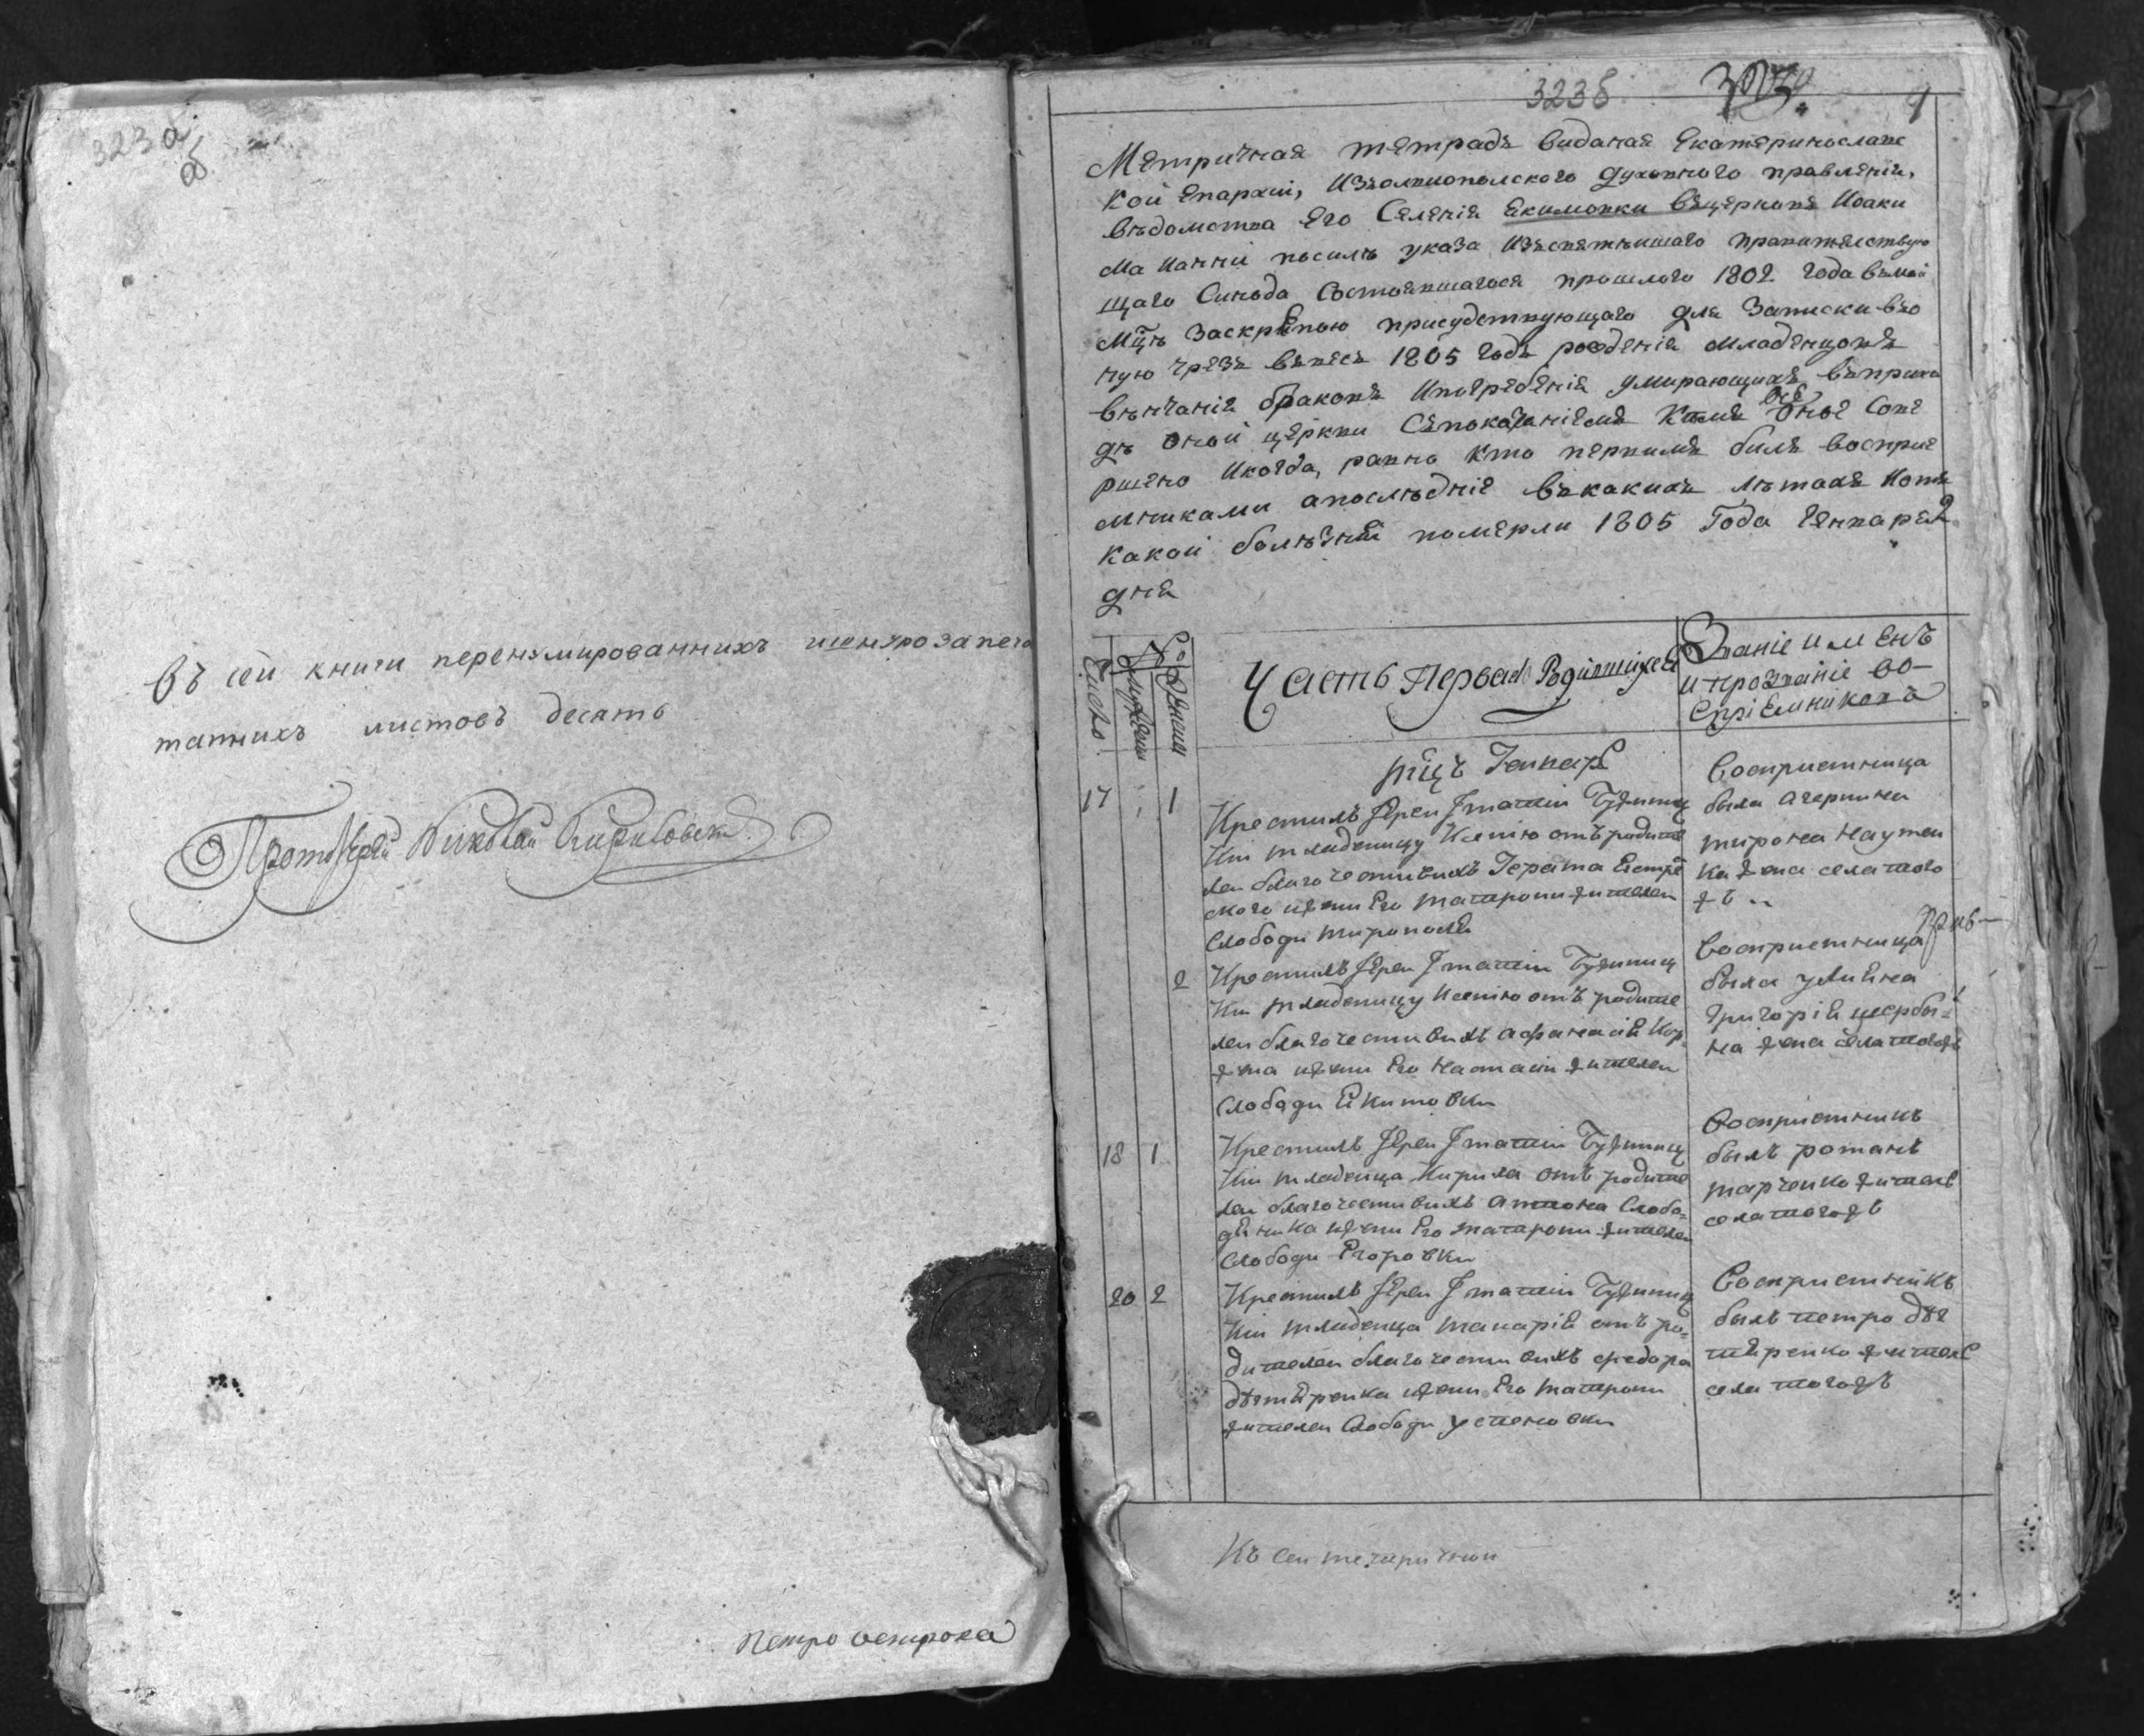 323 а
об
Въ сей книги перенумированнихъ ишнурозапеча
танихъ листовъ десять
Протоіерей Николай
Петро
323б
Мѣтричная тетрадъ виданая Екатеринославс
кой Епархіи, Изъолвиополского духовного правленія,
вѣдомства Его Селенія Екимовки въцерковъ Иоаки
ма Ианни посилѣ указа Изъсвятѣишаго правителствую
щаго Синода Состоявшагося прошлого 1802 года въмаи
мцѣ Заскрѣпою присудствующаго для Записки въо
ную чрезъ вѣвесь 1805 годъ рождения младенцовъ
вѣнчания браковъ Ипогребения умирающихъ въприхо
дѣ оной церкви Съпоказаниемъ Кѣмъ оное Сове
ршено Икогда, равно кто первимъ билъ восприе
мниками апослѣдние въкакихъ лѣтахъ Иотъ
какой болѣзни померли 1805 Года Генваря
дня
Число
Мужеска
Женска
Часть Первая Родившихся
Званіе именъ
ипрозваніе во-
спріемниковъ
мцъ Генваръ
17 1
Крестилъ Іерей Игнатій
кій младеницу Ксенію отъ родите
лей благочестивихъ
ского ижени Его матрони жителей
Слободи Мирополя
Восприемница
была агерпина
мирона
ка жена села того
жъ
2
Крестилъ Іерей Игнатій
кій младеницу Ксенію отъ родите
лей благочестивихъ афанасія Кор
жма ижени Его настасіи жителей
Слободи Екимовки
Восприемница
была улияна
григорія щерби=
на жена села тогожъ
18 1
Крестилъ Іерей Игнатій
кій младенца Кирила отъ родите
лей благочестивихъ антона Слобо=
дяника ижени Его матрони жителей
Слободи Егоровки
Восприемникъ
былъ романъ
марченко жителъ
села тогожъ
20 2
Крестилъ Іерей Игнатій
кій младенца макарія отъ ро=
дителей благочестивихъ федора
дегтяренка ижени Его матрони
жителей Слободи устеновки
Восприемникъ
былъ петро дег
тяренко жителъ
села тогожъ
Къ сей метричнои